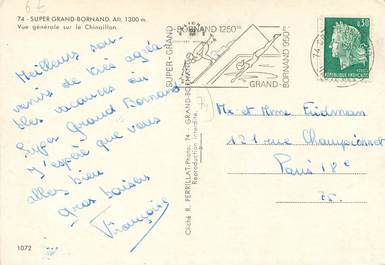 6€
74 - SUPER GRAND-BORNAND. Alt. 1300 m.
Vue générale sur le Chinaillon
Meilleurs sou-
venirs de très agréa
bles vacances au
Super Grand Bornand
J'espère que vous
allez bien
gros baisers
Françoise
1072
Cliché R. PERRILLAT-Photo. 74 - GRAND-BORNAND
Reproduction interdite.
SUPER-GRAND-BORNAND 1250m
GRAND-BORNAND 950m
74
0,30
REPUBLIQUE FRANÇAISE
Mr et Mme Fridman
121 rue Championnet
Paris 18e
75.